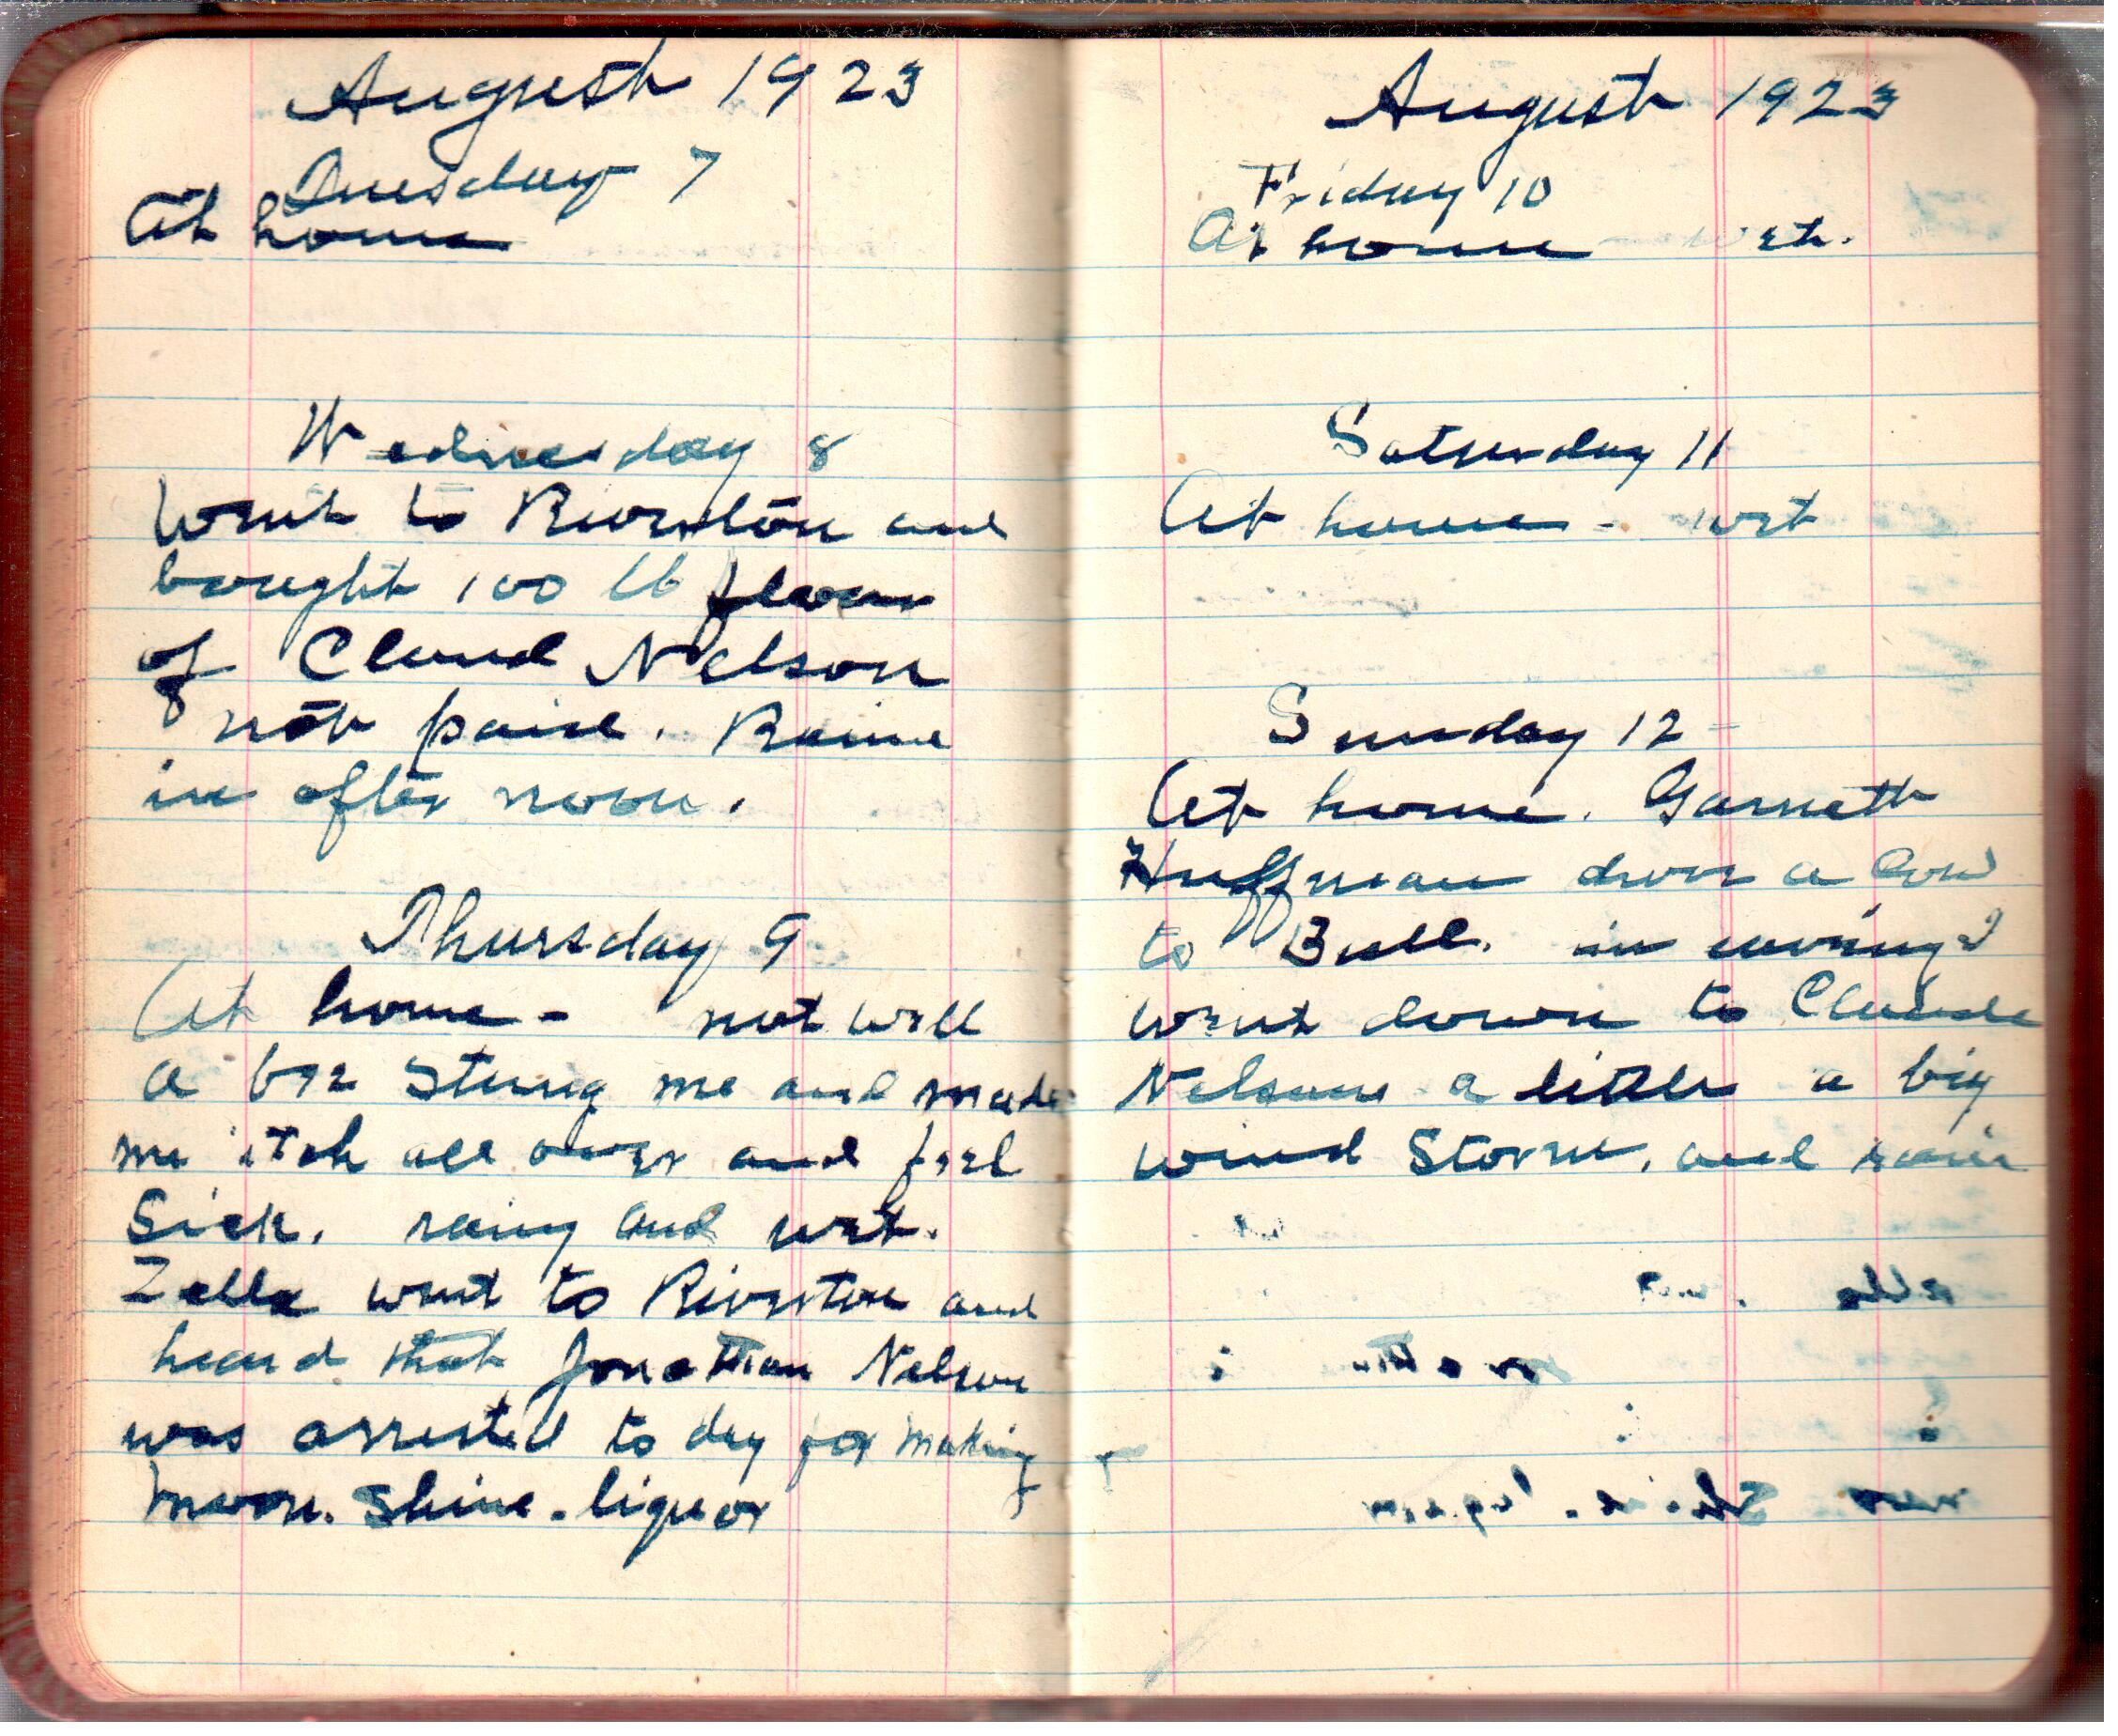 August 1923
Tuesday 7
At home
Wednesday 8
Went to Riverton and
bought 100 lb flour
of Claud Nelson
not paid. Raine
in after noon.
Thursday 9
At home - not well
a bee stung me and made
me itch all over and feel
Sick. rainy and wet.
Zella went to Riverton and
heard that Jonathan Nelson
was arrested to day for making
moon. Shine. liquor
August 1923
Friday 10
At home - wet.
Saturday 11
At home - wet
Sunday 12 -
At home. Garnett
Huffman drove a Cow
to Bull. in evening I
went down to Claude
Nelsons a little a big
wind Storm, and rain